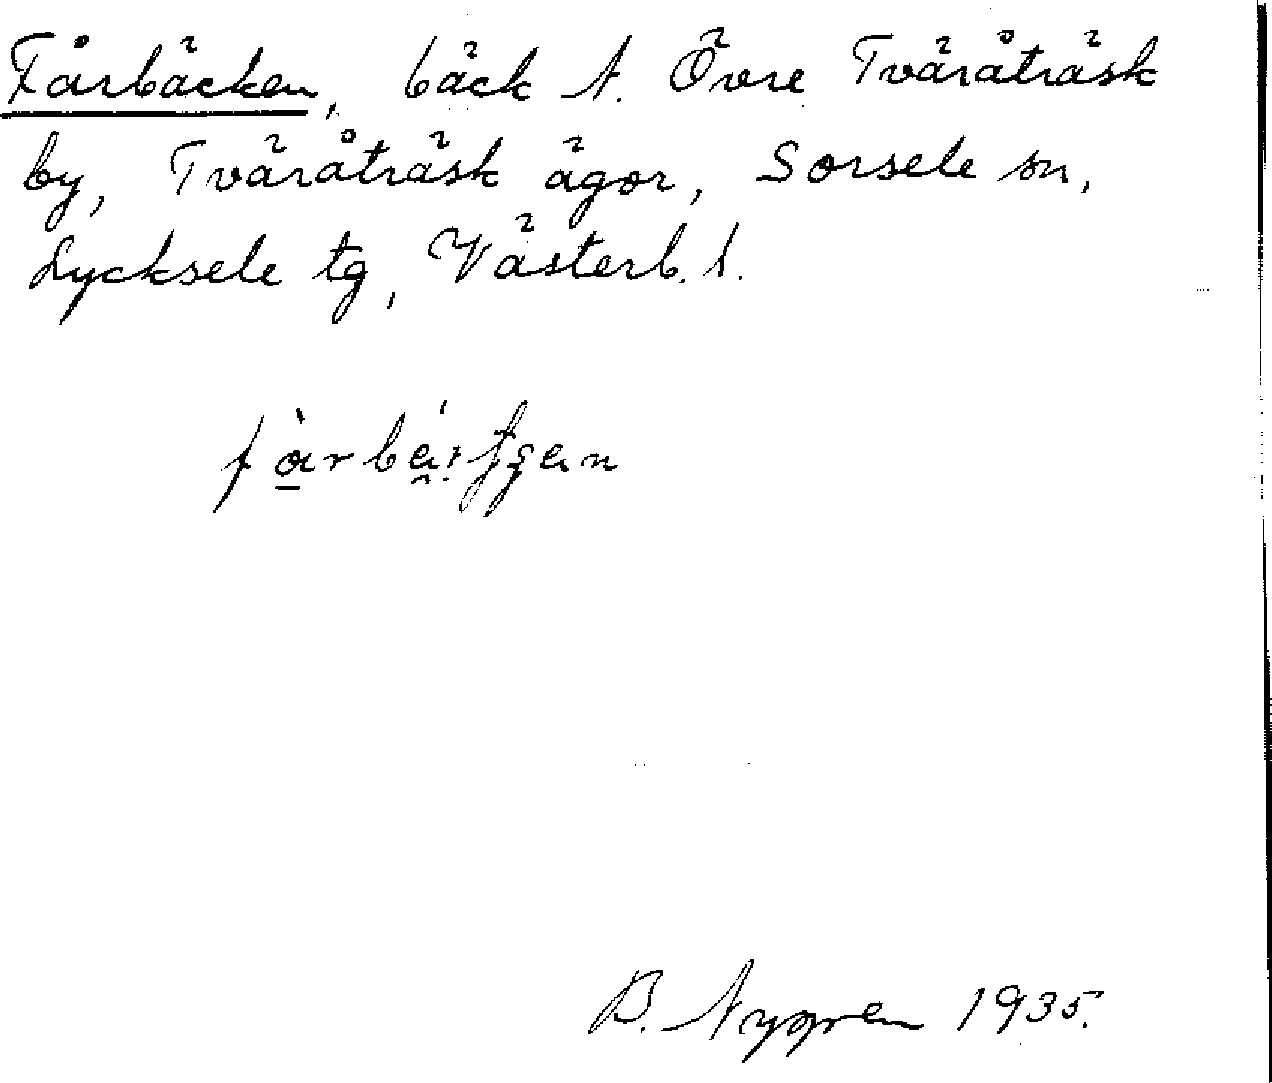 Fårbäcken, bäck N. Övre Tväråträsk
by, Tväråträsk ägor, Sorsele sn,
Lycksele tg, Västerb. l.
B. Nygren 1935.